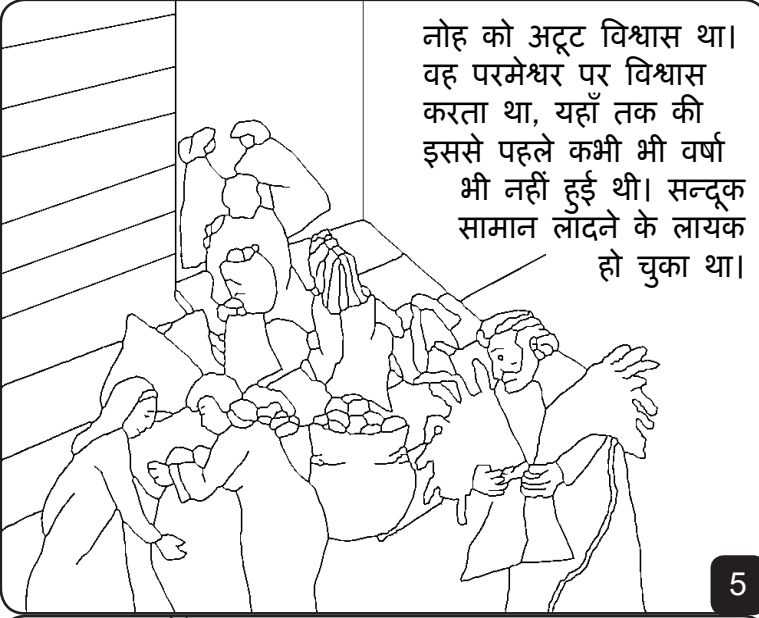 नोह को अटूट विश्वास था।
वह परमेश्वर पर विश्वास
करता था, यहाँ तक की
इससे पहले कभी भी वर्षा
भी नहीं हुई थी। सन्दूक
सामान लादने के लायक
हो चुका था।
5